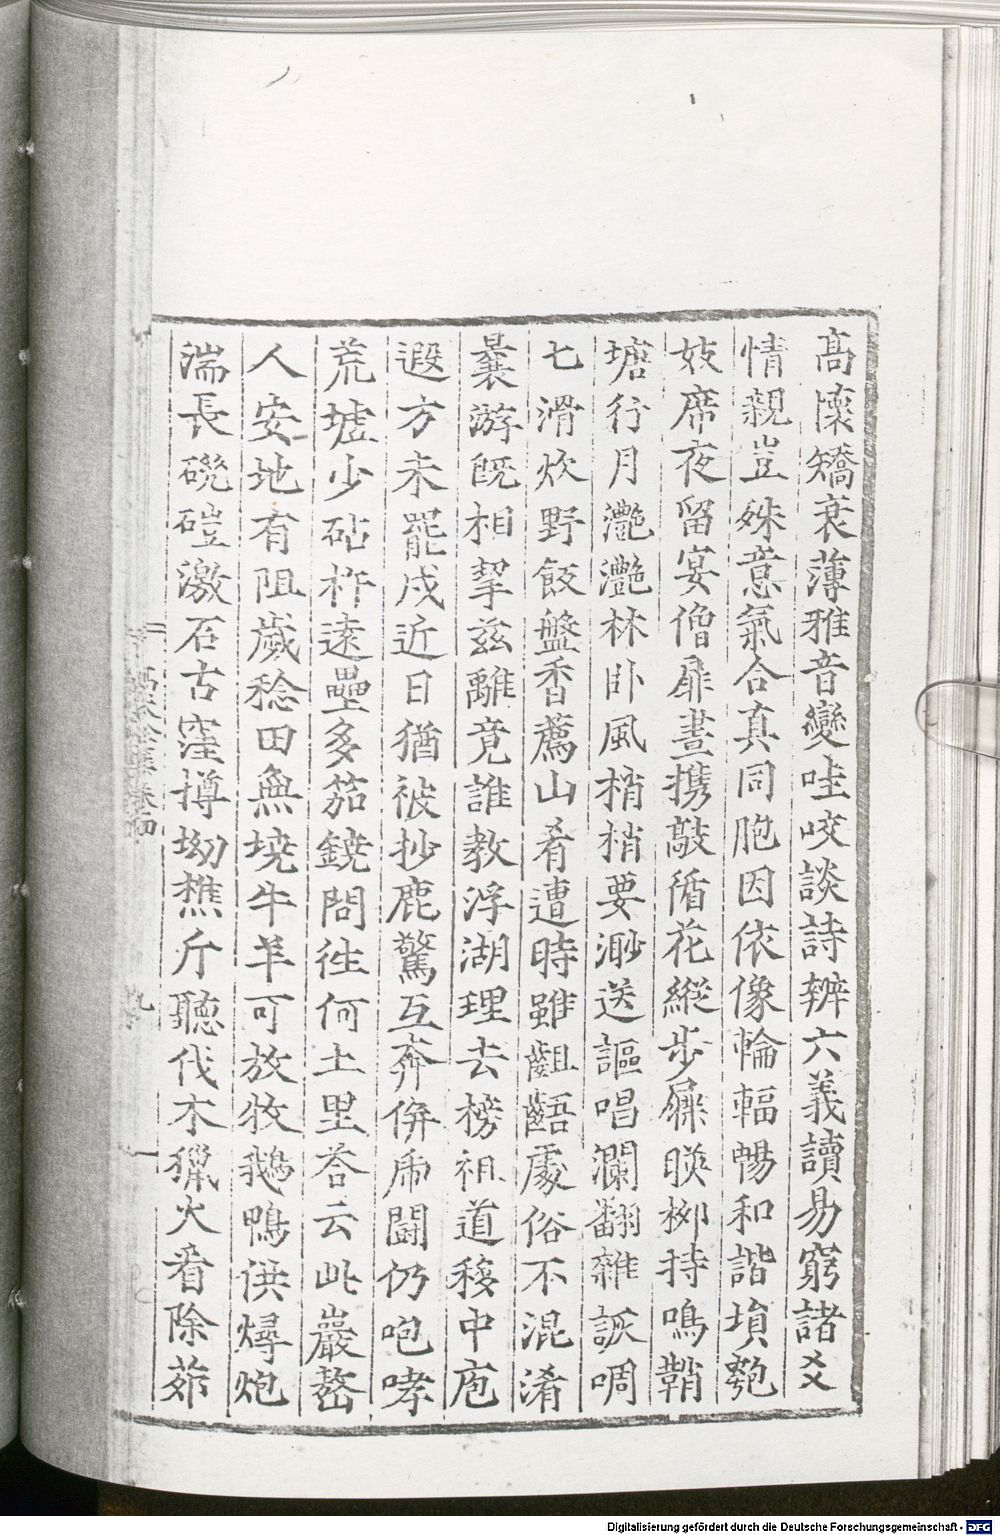 高懷矯衰薄雅音變哇咬談詩辨六義讀易窮諸爻
情親豈殊意氣合真同胞因依像輪輻暢和諧塤匏
妓席夜留宴僧扉晝攜敲循花縱步屧暎柳持鳴鞘
塘行月灔灔林卧風梢梢要渺送謳唱瀾翻雜詼啁
七滑炊野飯盤香薦山肴遭時雖齟齬處俗不混淆
曩游旣相挈兹離竟誰教浮湖理去榜祖道移中庖
遐方未罷戍近日猶被抄鹿驚互奔併虎鬭仍咆哮
荒墟少砧杵遠壘多笳鐃問徃何土里荅云此巖嶅
人安地有阻歲稔田無墝牛羊可放牧鵝鴨供燖炮
湍長磽磑激石古窪撙坳樵斤聽伐木獵火看除茆
九
Digitalisierung gefördert durch die Deutsche Forschungsgemeinschaft - DFG